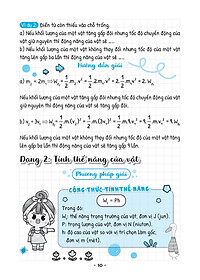 Ví dụ 2: Điền từ còn thiếu vào chỗ trống.
a) Nếu khối lượng của một vật tăng gấp đôi nhưng tốc độ chuyển động của
vật giữ nguyên thì động năng của vật sẽ .....
b) Nếu khối lượng của một vật không thay đổi nhưng tốc độ của một vật
tăng lên gấp ba lần thì động năng của vật sẽ .....
Hướng dẫn giải
Nếu khối lượng của một vật tăng gấp đôi nhưng tốc độ chuyển động của
vật giữ nguyên thì động năng của vật sẽ tăng gấp đôi.
Nếu khối lượng của một vật không thay đổi nhưng tốc độ của một vật tăng
lên gấp ba lần thì động năng của vật sẽ tăng gấp 9 lần.
Dạng 2: Tính thế năng của vật
Phương pháp giải
CÔNG THỨC TÍNH THẾ NĂNG
Wt = Ph
Trong đó:
Wt: thế năng trọng trường của vật, đơn vị J (jun).
P: trọng lượng của vật, đơn vị N (niuton).
h: độ cao của vật so với vị trí chọn làm gốc,
đơn vị m (mét).